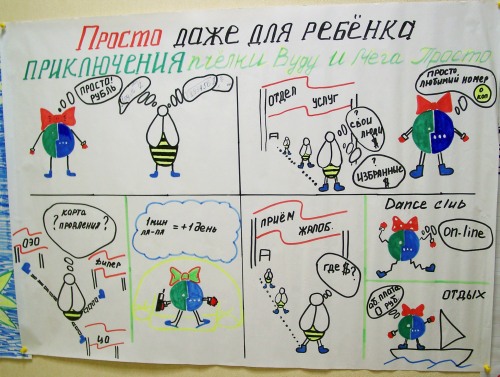 Просто даже для ребёнка
приключения пчёлки Вуду и Мега Просто
Просто!
Рубль
отдел
услуг
?
свои
люди
?
избранные
$
Просто,
любимый номер
0
коп
? карта ?
правления?
090
Дилер
ЦО
1 мин
ля-ля = +1 день
приём
жалоб.
где $?
Dance club
On-line
отдых
аб.плата
0 руб